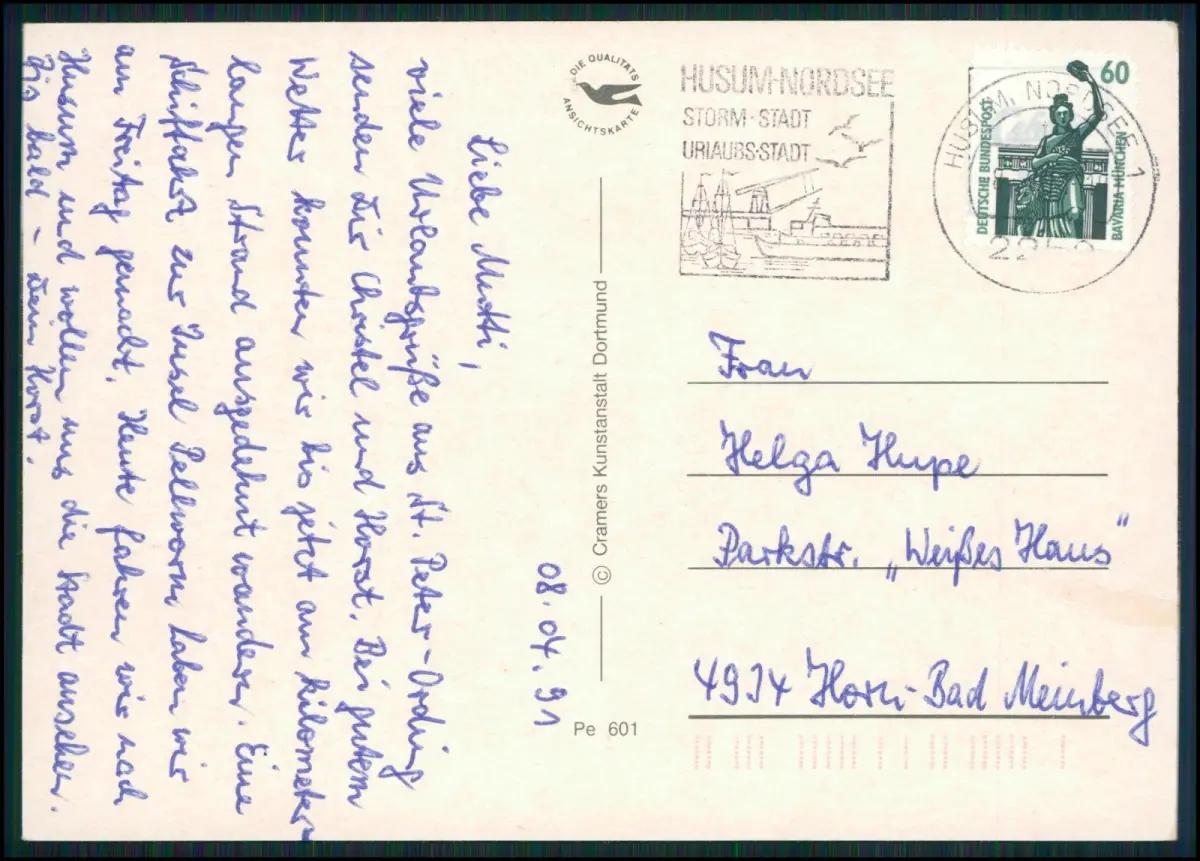 08.04.91
Liebe Mutti,
viele Urlaubsgrüße aus St. Peter-Ording
senden Dir Christel und Horst. Bei gutem
Wetter konnten wir bis jetzt am kilometer-
langen Strand ausgedehnt wandern. Eine
Schiffahrt zur Insel Pellworm haben wir
am Freitag gemacht. Heute fahren wir nach
Husum und wollen uns die Stadt ansehen.
Bis bald - Dein Horst.
DIE QUALITÄTS
ANSICHTSKARTE
© Cramers Kunstanstalt Dortmund
Pe 601
HUSUM-NORDSEE
STORM-STADT
URLAUBS-STADT
HUSUM, NORDSEE 1
60
DEUTSCHE BUNDESPOST
BAVARIA MÜNCHEN
Frau
Helga Hupe
Parkstr. „Weißes Haus"
4934 Horn-Bad Meinberg